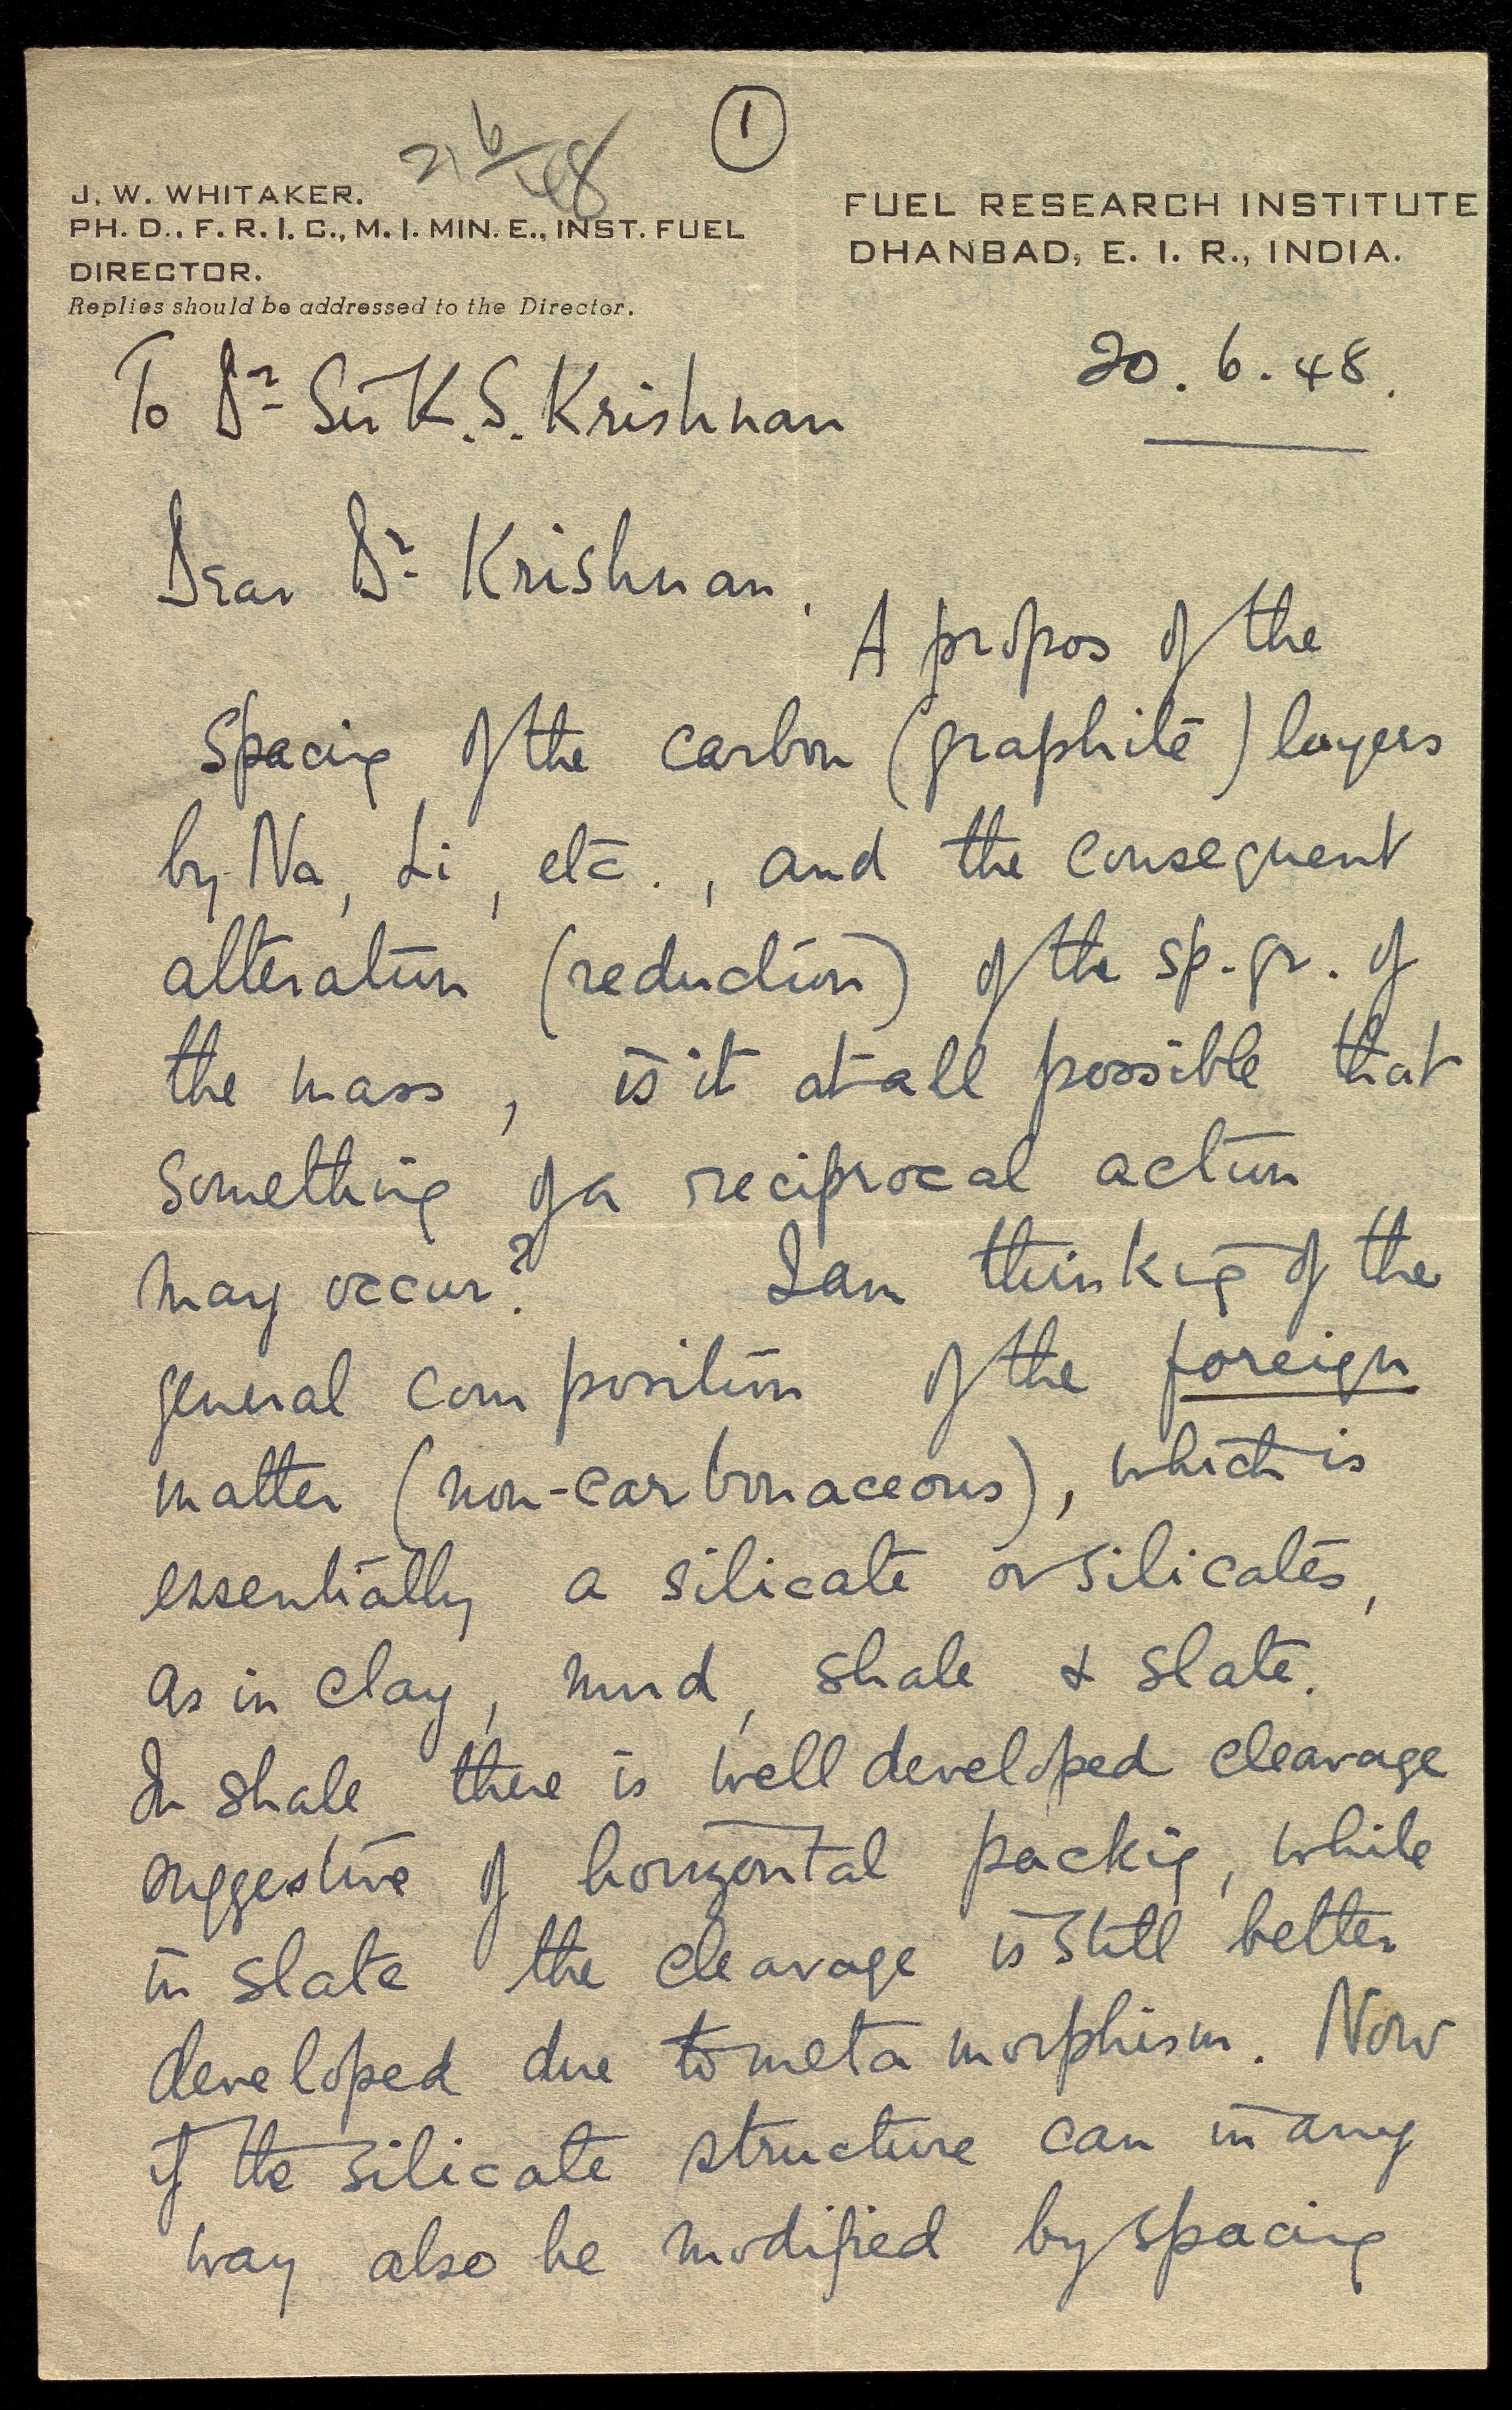 1
21/6/48
J. W. WHITAKER.
PH. D., F. R. I. C., M. I. MIN. E., INST. FUEL
DIRECTOR.
Replies should be addressed to the Director.
FUEL RESEARCH INSTITUTE
DHANBAD, E. I. R., INDIA.
20. 6. 48.
To Dr Sir K. S. Krishnan
Dear Dr Krishnan,
A propos of the
spacing of the carbon (graphite) layers
by Na, Li, etc., and the consequent
alteration (reduction) of the sp. gr. of
the mass, is it at all possible that
something of a reciprocal action
may occur? I am thinking of the
general composition of the foreign
matter (non-carbonaceous), which is
essentially a silicate or silicates,
as in clay, mud, shale & slate.
In shale there is well developed cleavage
suggestive of horizontal packing, while
in slate the cleavage is still better
developed due to metamorphism. Now
if the silicate structure can in any
way also be modified by spacing